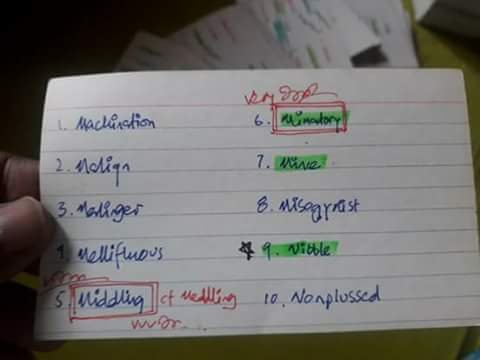 1. Machination
2. Malign
3. Malinger
4. Mellifluous
5. Middling cf Meddling
very
6. Minatory
7.
8. Misogynist
9. Nibble
10. Nonplussed